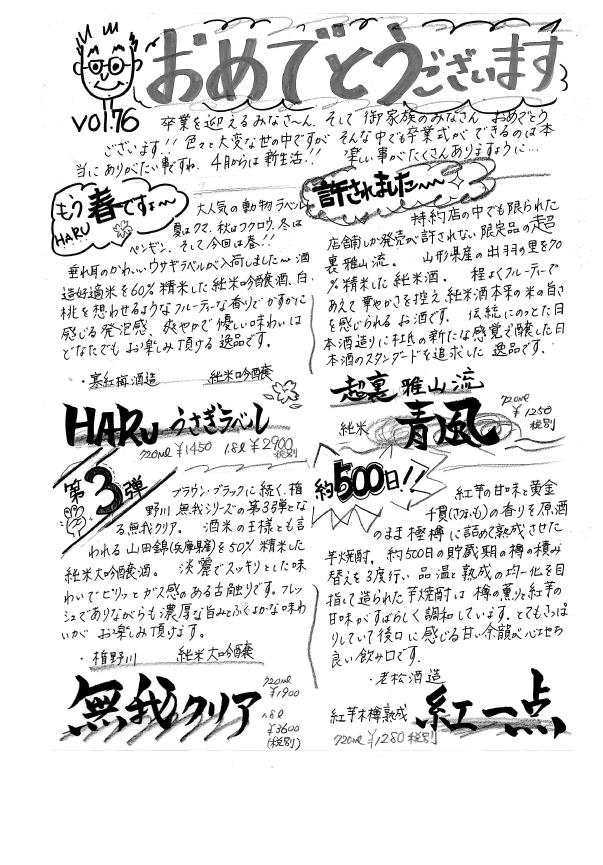 おめでとうございます
vol.76
卒業を迎えるみなさ〜ん、そして御家族のみなさん おめでとう
ございます!! 色々と大変な世の中ですが そんな中でも卒業式ができるのは本
当にありがたい事ですね、4月からは新生活!! 楽しい事がたくさんありますように…
もう春ですよ〜
HARU
大人気の動物ラベル
夏はクマ、秋はフクロウ、冬は
ペンギン、そして今回は春!!
垂れ耳のかわいいウサギラベルが入荷しました〜 酒
造好適米を60%精米した純米吟醸酒、白
桃を想わせるようなフルーティーな香りでかすかに
感じる発泡感、爽やかで優しい味わいは
どなたでも お楽しみ頂ける 逸品です。
・寒紅梅酒造 純米吟醸
HARU うさぎラベル
720ml ¥1450 1.8l ¥2900
税別
許されました〜〜
特約店の中でも限られた
店舗しか発売が許されない限定品の超
裏雅山流。 山形県産の出羽の里を70
%精米した純米酒。 程よくフルーティーで
あえて華やかさを控え純米酒本来の米の旨さ
を感じられるお酒です。 伝統にのっとた日
本酒造りに杜氏の新たな感覚で醸した日
本酒のスタンダードを追求した 逸品です。
超裏 雅山流
純米 青風
720ml
¥1250
税別
第3弾
ブラウン・ブラックに続く、楯
野川 無我シリーズの第3弾とな
る無我クリア。 酒米の王様とも言
われる 山田錦(兵庫県産)を50%精米した
純米大吟醸酒。 淡麗でスッキリとした味
わいでピリッとガス感のある舌触りです。フレッ
シュでありながらも濃厚な旨みとふくよかな味わ
いが お楽しみ頂けます。
・楯野川 純米大吟醸
無我クリア
720ml
¥1900
1.8l
¥3600
(税別)
約500日!!
紅芋の甘味と黄金
千貫(さつまいも)の香りを原酒
のまま樫樽に詰めて熟成させた
芋焼酎。 約500日の貯蔵期の樽の積み
替えを3度行い 品温と熟成の均一化を目
指して造られた芋焼酎は 樽の薫りと紅芋の
甘味がすばらしく調和しています。とてもさっぱ
りしていて後口に感じる甘い余韻が心地ち
良い飲み口です。
・老松酒造
紅芋木樽熟成 紅一点
720ml ¥1280 税別